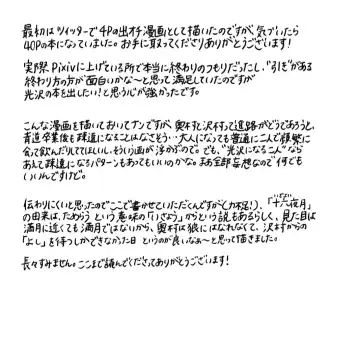 最初はツイッターで4Pの出オチ漫画として描いたのですが、気づいたら
40Pの本になっていました。お手に取ってくださりありがとうございます！
実際Pixivに上げている所で本当に終わりのつもりだったし、"引き"がある
終わり方の方が面白いかな〜と思って満足していたのですが
光沢の本を出したい！と思う心が強かったです。
こんな漫画を描いておいてナンですが、奥村と沢村って進路がどうであろうと、
青道卒業後も疎遠になることはなさそう…大人になっても普通に二人で頻繁に
会って飲んだりしててほしいし、そういう画が浮かぶので。でも、"光沢になる二人"なら
あえて疎遠になるパターンもあってもいいのかな。まあ全部妄想なので何でも
いいんですけど。
伝わりにくいと思ったのでここで書かせていただくんですが(力不足！)、「十六夜月」
いざよい
の由来は、ためらうという意味の「いさよう」からという説もあるらしく、見た目は
満月に近くても満月ではないから、奥村は狼にはなれなくて、沢村からの
「よし」を待つしかできなかった日 というのが良いなぁ〜と思って描きました。
長々すみません。ここまで読んでくださってありがとうございます！